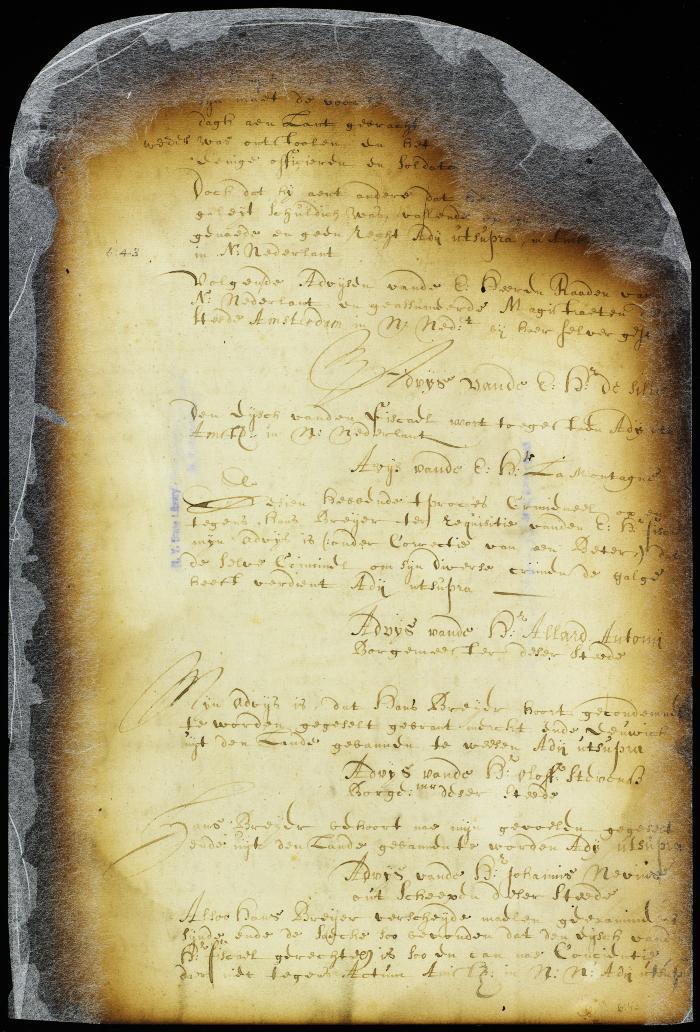 maet de voor
dagh aen Lant gebracht
weder was ontstoolen en het
eenige offizieren en Soldate
Doch dat hij aent andere dat
geleijt schuldich was, vallende
genaede en geen recht Adij utsupra in Amst
in N: Nederlant
643
Volgende Advijsen vande E: Heeren Raaden va
N: Nederlant en geassumeerde Magistraeten
Steede Amsterdam in N: Ned:t bij haer selver ges
Advijs vande E: Hr: de Sille
Den Eijsch vanden Fiscael wort toegestaen Adij
Amst: in N: Nederlant
Avijs vande E: Hr La Montagne
N. Y. State Library
Gesien hebbende t proces Crimineel
tegens Hans Breijer ter requisitie vanden E: Hr fisc
mijn advijs is (onder Correctie van een Beter) dat
de selve Crimineel om sijn diverse crimen de galge
heeft verdient Adij utsupra
Advijs vande Hr: Allard Antonij
Borgemeester deser Steede
Mijn advijs is dat Hans Breijer hoort gecondemn
te worden gegeselt gebrant merckt ende Eeuwich
uijt den Lande gebannen te weesen Adij utsupra
Advijs vande Hr: oloff Stevens
Borge:mr deser Steede
Hans Breijer behoort nae mijn gevoelen gegeselt
ende uijt den Lande gebannen te worden Adij utsupra
Advijs vande Hr: Johannis Nevius
out Scheepen deser Steede
Alsoo Hans Breijer verscheijde maelen geexamineert
sijnde ende de saecke soo bevonden dat den eijsch vande
Hr fiscael gerechtig is soo en can nae Conscientie
daer niet tegen Actum Amst: in N: N: Adij utsup